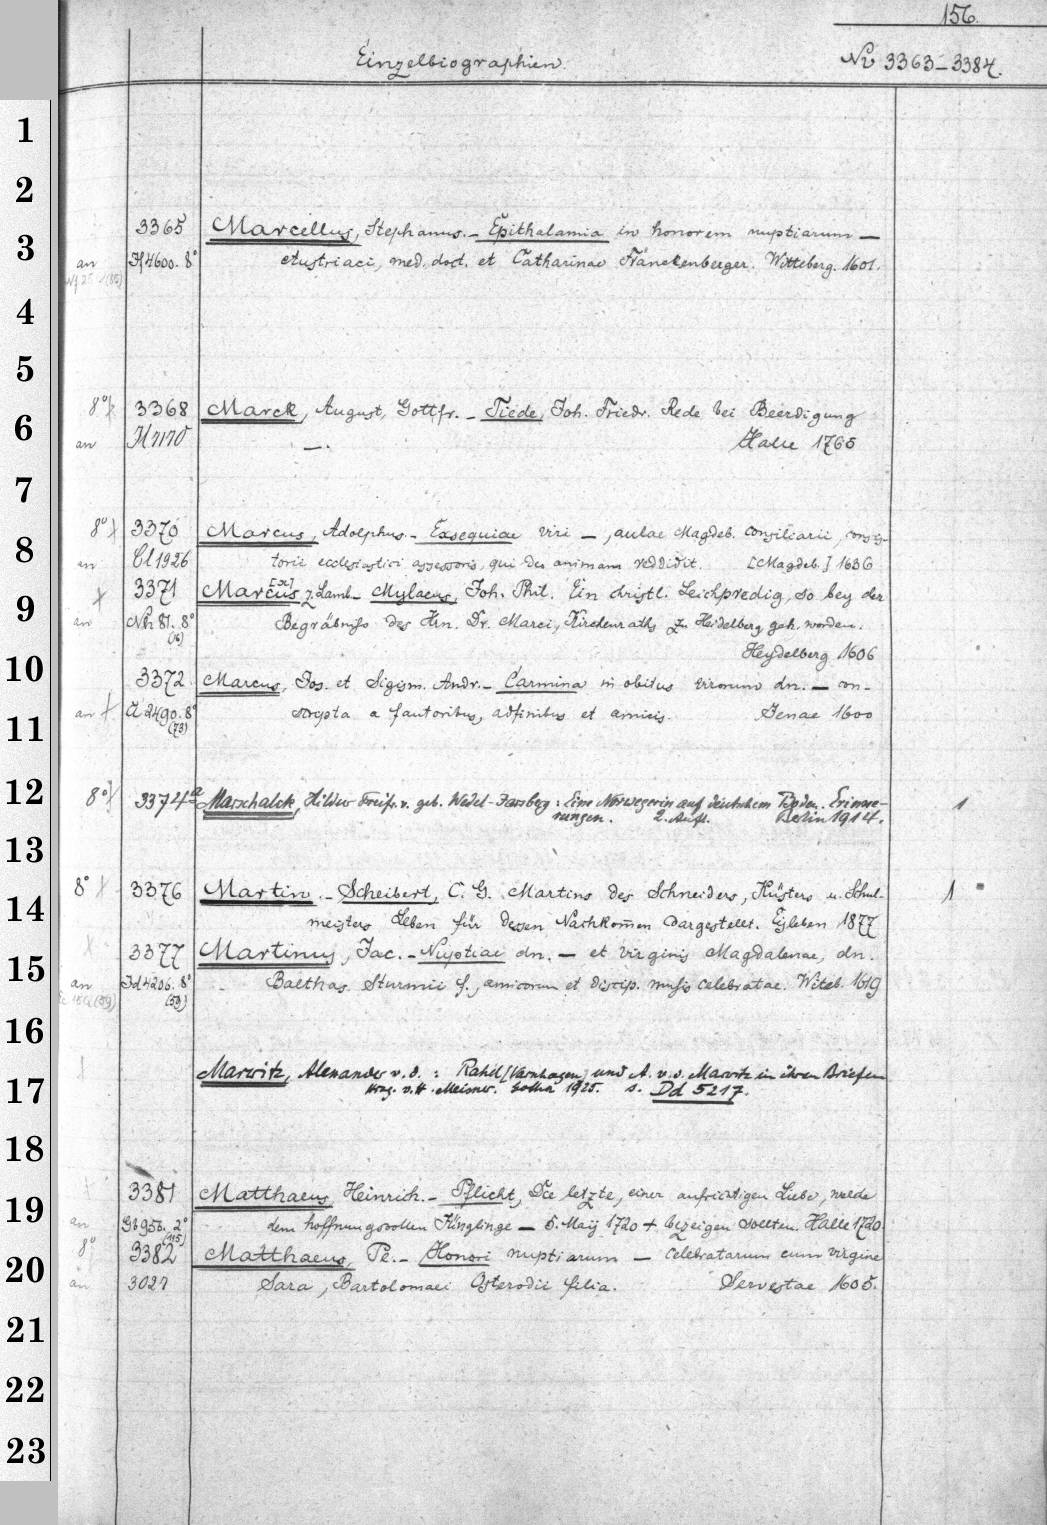 156.
Einzelbiographien.
No 3363-3384.
1
2
3365 Marcellus, Stephanus. - Epithalamia in honorem nuptiarum —
3
an 4600. 8° Austriaci, med. doct. et Catharinae Franckenberger. Witteberg. 1601.
4
5
8° 3368 Marck, August, Gottfr. - Tiede, Joh. Friedr. Rede bei Beerdigung
6
an —. Halle 1765
7
8° 3370 Marcus, Adolphus. - Exsequiae viri —, aulae Magdeb. consiliarii, consis-
8
an 1926 torii ecclesiastici assessoris, qui deo animam reddidit. [Magdeb.] 1636
3371 Marcus, z. Lamb. - Mylaeus, Joh. Phil. Ein christl. Leichpredig, so bey der
9
an 81. 8° (16) Begräbniss des Hrn. Dr. Marci, Kirchenraths zu Heidelberg geh. worden.
Heydelberg 1606
10
3372 Marcus, Jos. et Sigism. Andr. - Carmina in obitus virorum dn. — con-
an 2490. 8° (73) scripta a fautoribus, adfinibus et amicis. Jenae 1600
11
12
8° 3374a Marschalck, Hildur Freifr. v. geb. Wedel-Jarsberg: Eine Norwegerin auf deutschem Boden. Erinne- 1
rungen. 2. Aufl. Berlin 1914.
13
8° 3376 Martin. - Scheibert, C. G. Martins des Schneiders, Küsters u. Schul- 1
14
meisters Leben für dessen Nachkom̄en dargestellt. Eisleben 1877
3377 Martinus, Jac. - Nuptiae dn. — et virginis Magdalenae, dn.
15
an 4206. 8° (59) Balthas. Sturmii f., amicorum et discip. musis celebratae. Witeb. 1619
16
Marwitz, Alexander v. d.: Rahel [Varnhagen] und A. v. d. Marwitz in ihren Briefen
17
Hrsg. v. H. Meisner. Gotha 1925. s. Dd 5217.
18
3381 Matthaeus, Heinrich. - Pflicht, Die letzte, einer aufrichtigen Liebe, welche
19
an 956. 2° (115) dem hoffnungsvollen Jünglinge — 5. Maij 1720 + bezeigen sollten. Halle 1720.
8° 3382 Matthaeus, Pe. - Honori nuptiarum — celebratarum cum virgine
20
an 3027 Sara, Bartolomaei Osterodii filia. Servestae 1605.
21
22
23